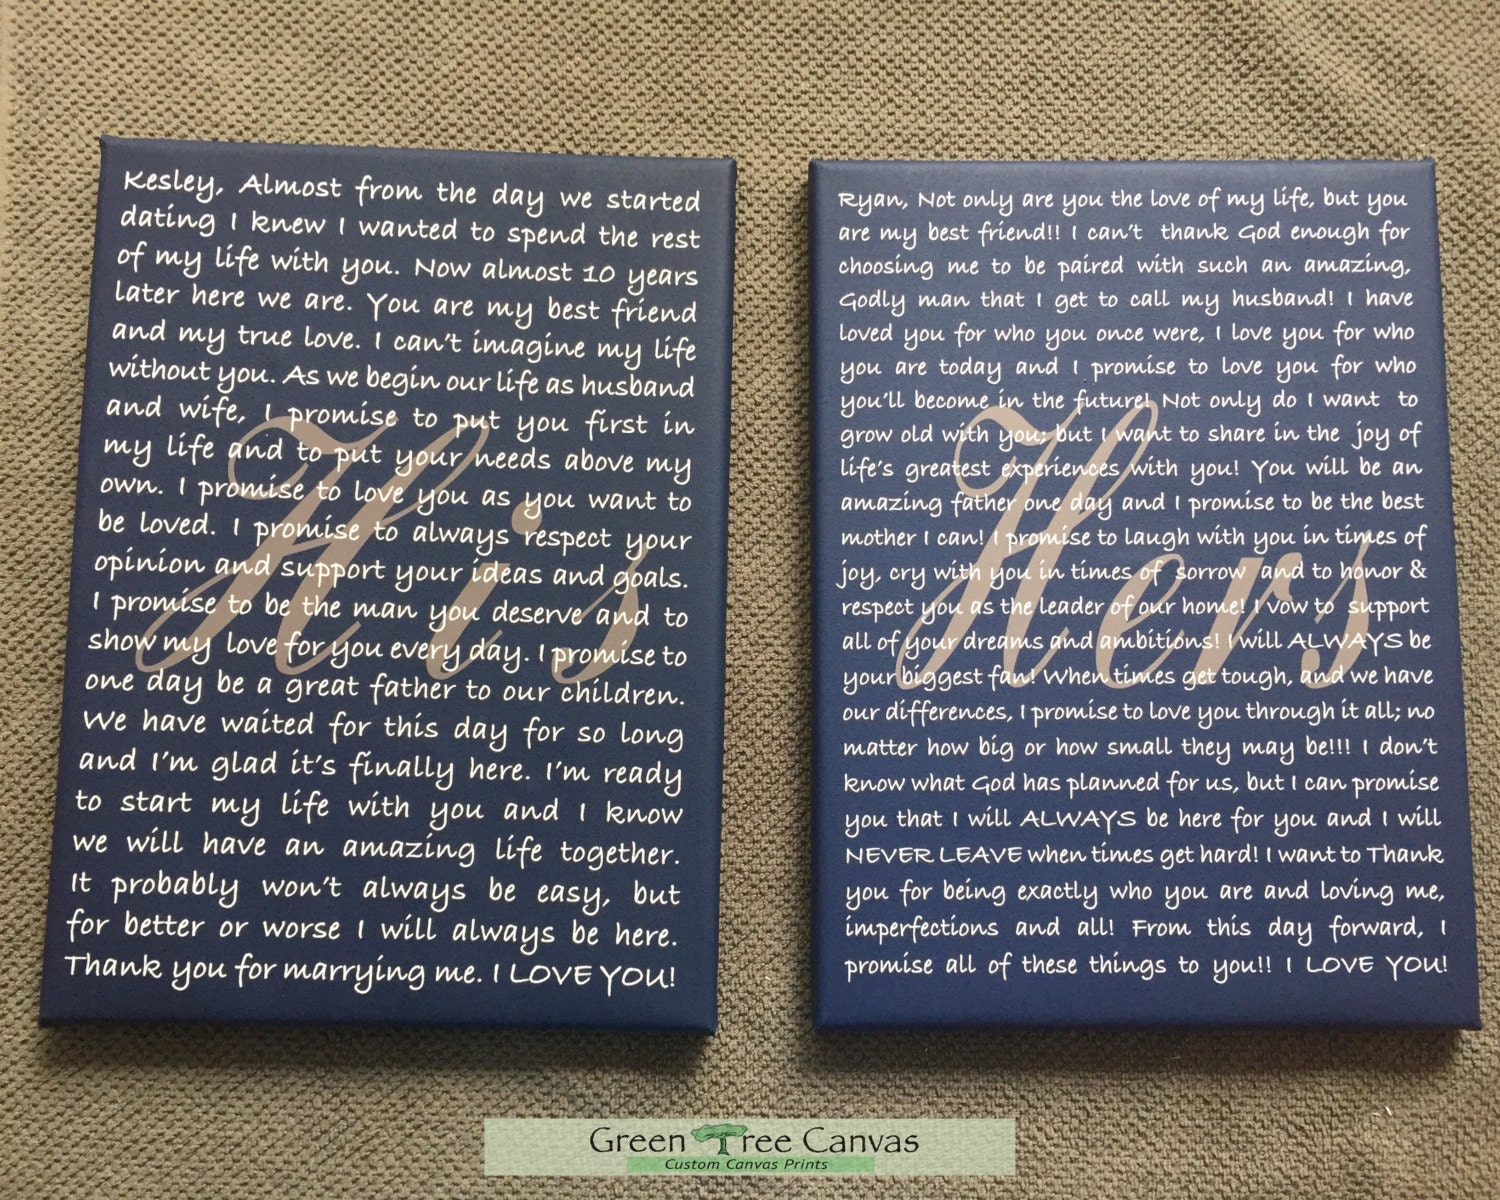 Kesley, Almost from the day we started
dating I knew I wanted to spend the rest
of my life with you. Now almost 10 years
later here we are. You are my best friend
and my true love. I can't imagine my life
without you. As we begin our life as husband
and wife, I promise to put you first in
my life and to put your needs above my
own. I promise to love you as you want to
be loved. I promise to always respect your
opinion and support your ideas and goals.
I promise to be the man you deserve and to
show my love for you every day. I promise to
one day be a great father to our children.
We have waited for this day for so long
and I'm glad it's finally here. I'm ready
to start my life with you and I know
we will have an amazing life together.
It probably won't always be easy, but
for better or worse I will always be here.
Thank you for marrying me. I LOVE YOU!
His
Ryan, Not only are you the love of my life, but you
are my best friend!! I can't thank God enough for
choosing me to be paired with such an amazing,
Godly man that I get to call my husband! I have
loved you for who you once were, I love you for who
you are today and I promise to love you for who
you'll become in the future! Not only do I want to
grow old with you; but I want to share in the joy of
life's greatest experiences with you! You will be an
amazing father one day and I promise to be the best
mother I can! I promise to laugh with you in times of
joy, cry with you in times of sorrow and to honor &
respect you as the leader of our home! I vow to support
all of your dreams and ambitions! I will ALWAYS be
your biggest fan! When times get tough, and we have
our differences, I promise to love you through it all; no
matter how big or how small they may be!!! I don't
know what God has planned for us, but I can promise
you that I will ALWAYS be here for you and I will
NEVER LEAVE when times get hard! I want to Thank
you for being exactly who you are and loving me,
imperfections and all! From this day forward, I
promise all of these things to you!! I LOVE YOU!
Hers
Green Tree Canvas
Custom Canvas Prints